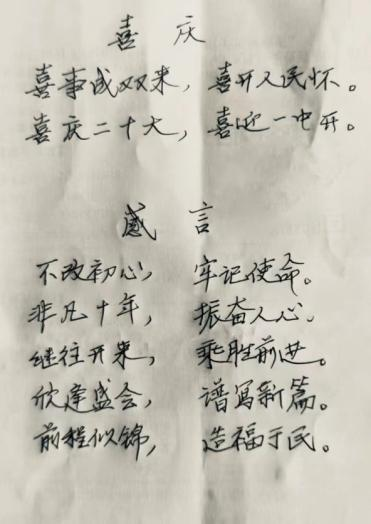 喜庆
喜事成双来，喜开人民怀。
喜庆二十大，喜迎一中开。
感言
不改初心，牢记使命。
非凡十年，振奋人心。
继往开来，乘胜前进。
欣逢盛会，谱写新篇。
前程似锦，造福于民。